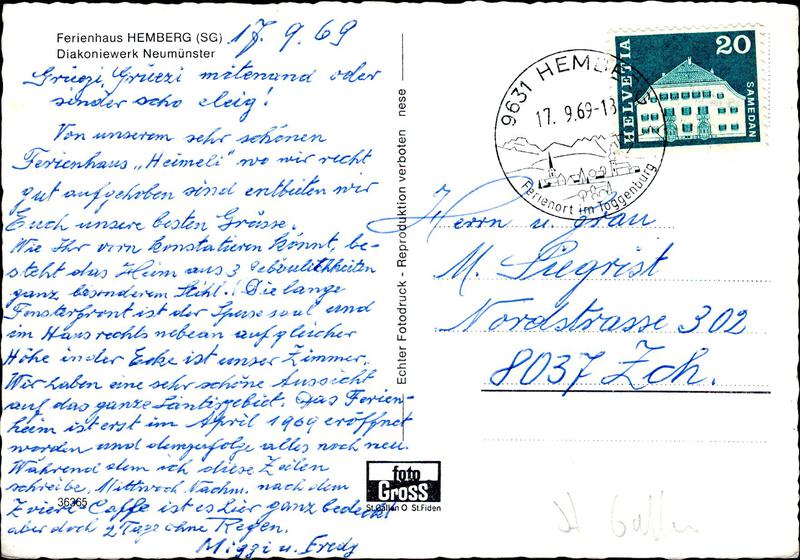 Ferienhaus HEMBERG (SG)
Diakoniewerk Neumünster
17.9.69
Grüezi, Grüezi mitenand oder
sinder scho eleig!
Von unserem sehr schönen
Ferienhaus „Heimeli" wo wir recht
gut aufgehoben sind entbieten wir
Euch unsere besten Grüsse.
Wie Ihr vorn konstatieren könnt, be-
steht das Heim aus 3 Gebäulichkeiten
ganz besonderem Stihl! Die lange
Fensterfront ist der Speisesaal und
im Haus rechts nebean auf gleicher
Höhe in der Ecke ist unser Zimmer.
Wir haben eine sehr schöne Aussicht
auf das ganze Säntisgebiet. Das Ferien-
heim ist erst im April 1969 eröffnet
worden und demzufolge alles noch neu.
Während dem ich diese Zeilen
schreibe, Mittwoch Nachm. nach dem
Zvieri-Caffe ist es hier ganz bedeckt
aber doch 2 Tage ohne Regen.
Miggi u. Fredy
36365
Echter Fotodruck - Reproduktion verboten nese
foto
GROSS
St.Gallen O St.Fiden
9631 HEMBERG
17. 9.69-18
Ferienort im Toggenburg
HELVETIA
20
SAMEDAN
Herrn u. Frau
M. Siegrist
Nordstrasse 302
8037 Zch.
St Gallen